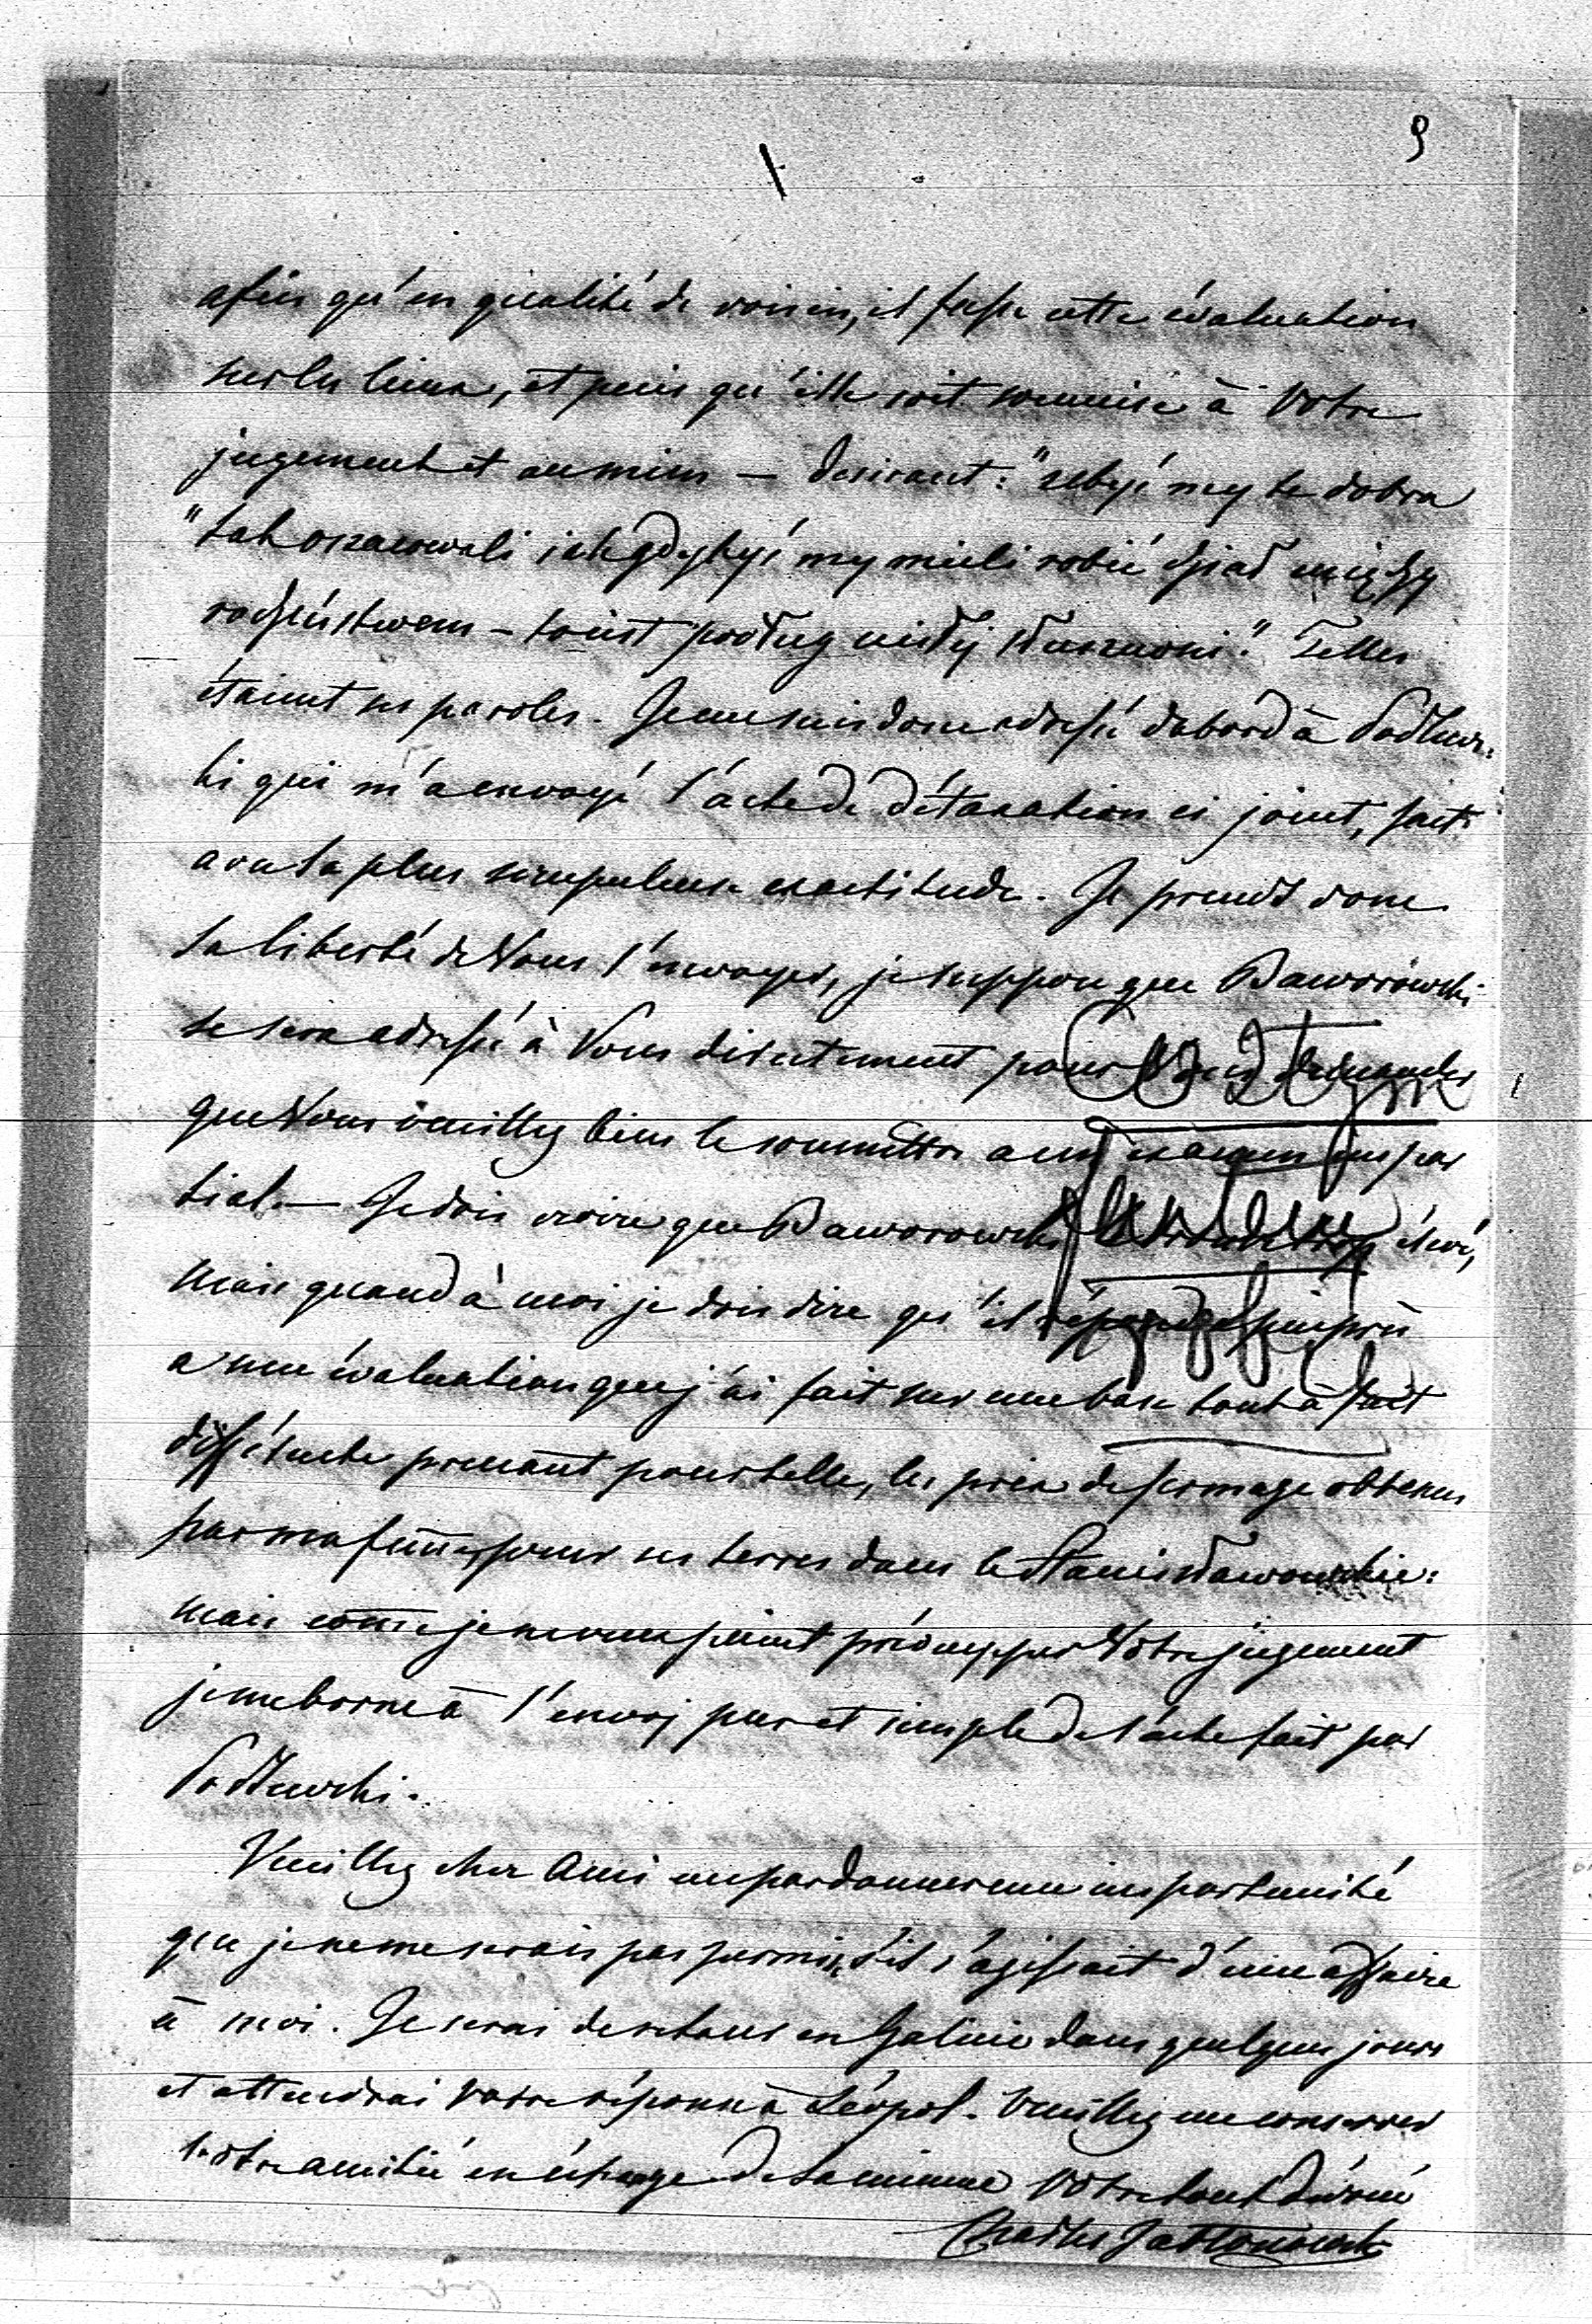 9
afin qu'en qualité de voisin, il fasse cette évaluation
sur les lieux, et puis qu'elle soit soumise à Votre
jugement et au mien — desirant: "żebyś my te dobra
"tak oszacowali jak gdybyś my mieli robić dział między
rodzeństwem – to jest podług ścisłej słuszności." Telles
étaient ses paroles. Je me suis donc adressé dabord à Podlews:
ki qui m'a envoyé l'acte de détaxation ci joint, fait
avec la plus scrupuleuse exactitude. Je prends donc
la liberté de Vous l'envoyer, je suppose que Baworowski
se sera adressé à Vous directement pour Vous demander
que Vous veuillez bien le soumettre a un examen impar
tial. — Je dois croire que Baworowski le trouve trop élevé,
mais quand à moi je dois dire qu'il répond
a une évaluation que j'ai fait sur une base tout à fait
différente prenant pour telle, les prix de fermage obtenus
par ma femme pour ses terres dans le Stanisławowskie:
mais come je ne veux point préoccuper Votre jugement
je me borne à l'envoj pur et simple de l'acte fait par
Podlewski.
Veuillez cher Ami me pardonner une importunité
que je ne me serais pas permis, s'il s'agissait d'une affaire
à moi. Je serai de retour en Galicie dans quelques jours
et attendrai votre réponse à Léopol. Veuillez me conserver
Votre amitié en échange de la mienne Votre tout dévoué
Charles Jabłonowski